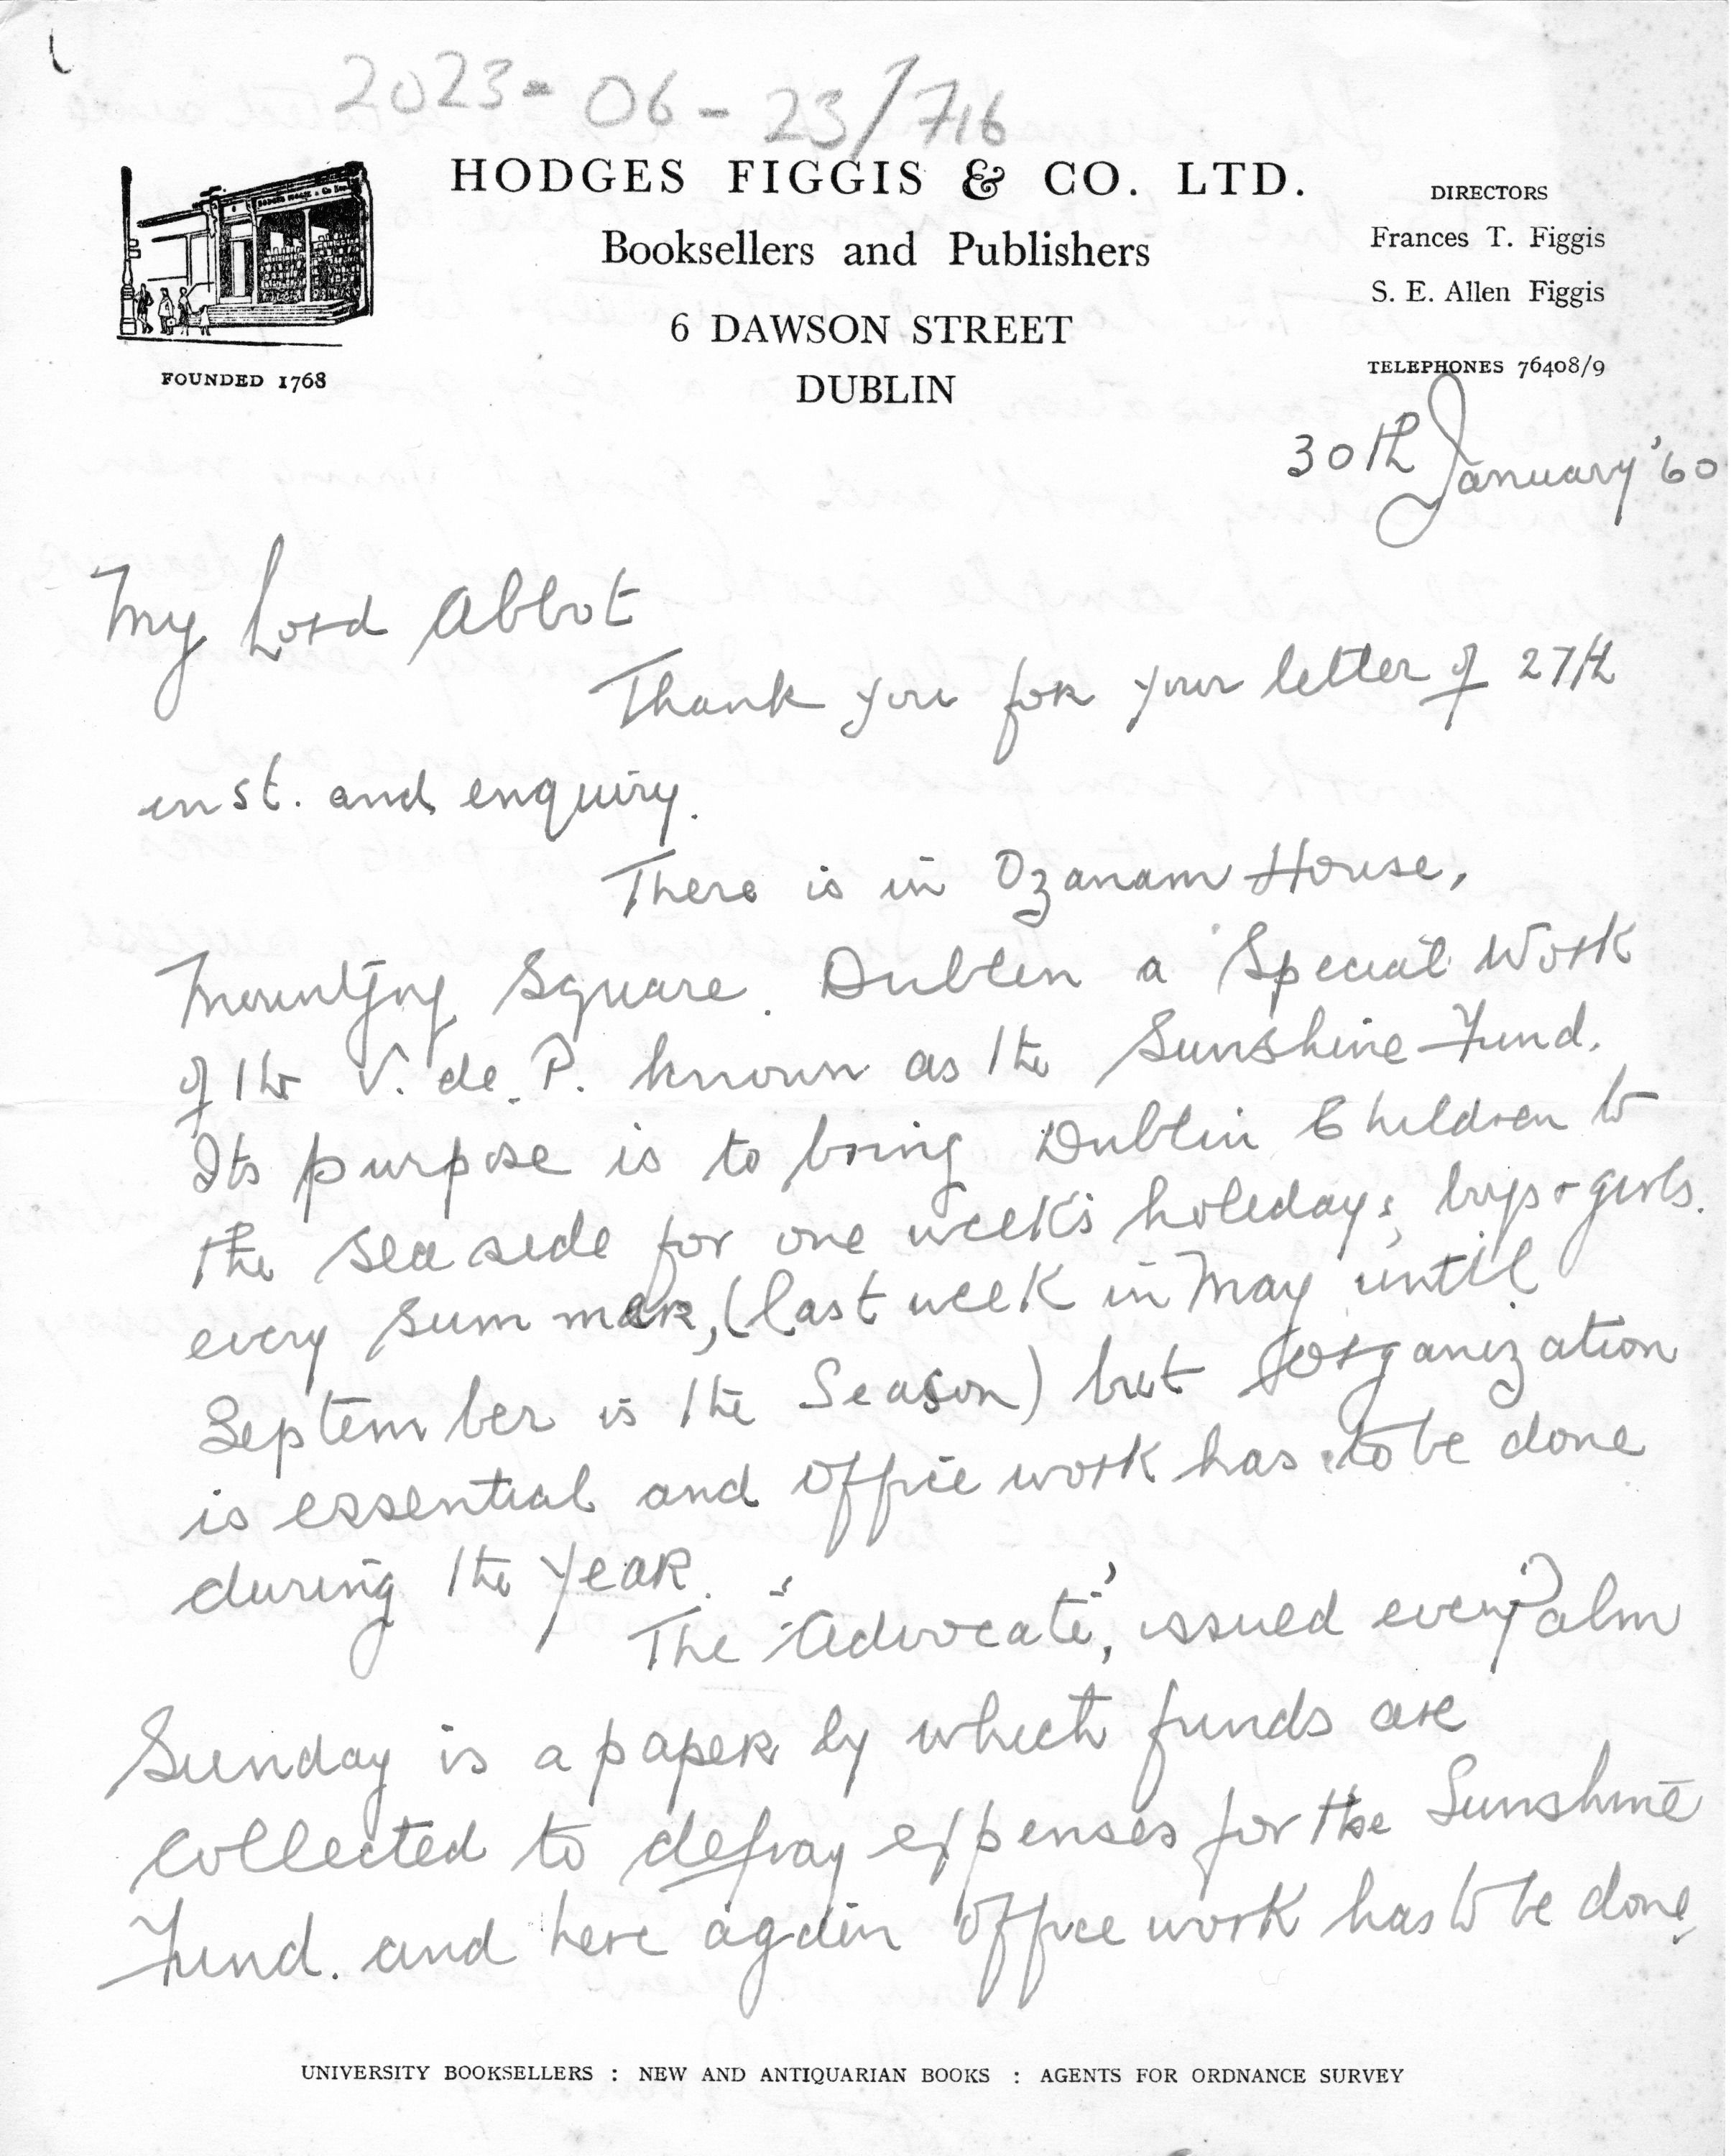 2023-06-23/716
HODGES FIGGIS & CO. LTD.
Booksellers and Publishers
6 DAWSON STREET
DUBLIN
FOUNDED 1768
DIRECTORS
Frances T. Figgis
S. E. Allen Figgis
TELEPHONES 76408/9
30th January '60
My Lord Abbot
Thank you for your letter of 27th
inst. and enquiry.
There is in Ozanam House,
Mountjoy Square. Dublin a Special Work
of the V. de. P. known as the Sunshine Fund.
Its purpose is to bring Dublin Children to
the sea side for one week's holiday; boys + girls.
every summer, (last week in May until
September is the Season) but organization
is essential and office work has to be done
during the year.
The "Advocate", issued every Palm
Sunday is a paper by which funds are
collected to defray expenses for the Sunshine
Fund. and here again office work has to be done,
UNIVERSITY BOOKSELLERS : NEW AND ANTIQUARIAN BOOKS : AGENTS FOR ORDNANCE SURVEY